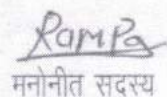 Rampa
मनोनीत सदस्य